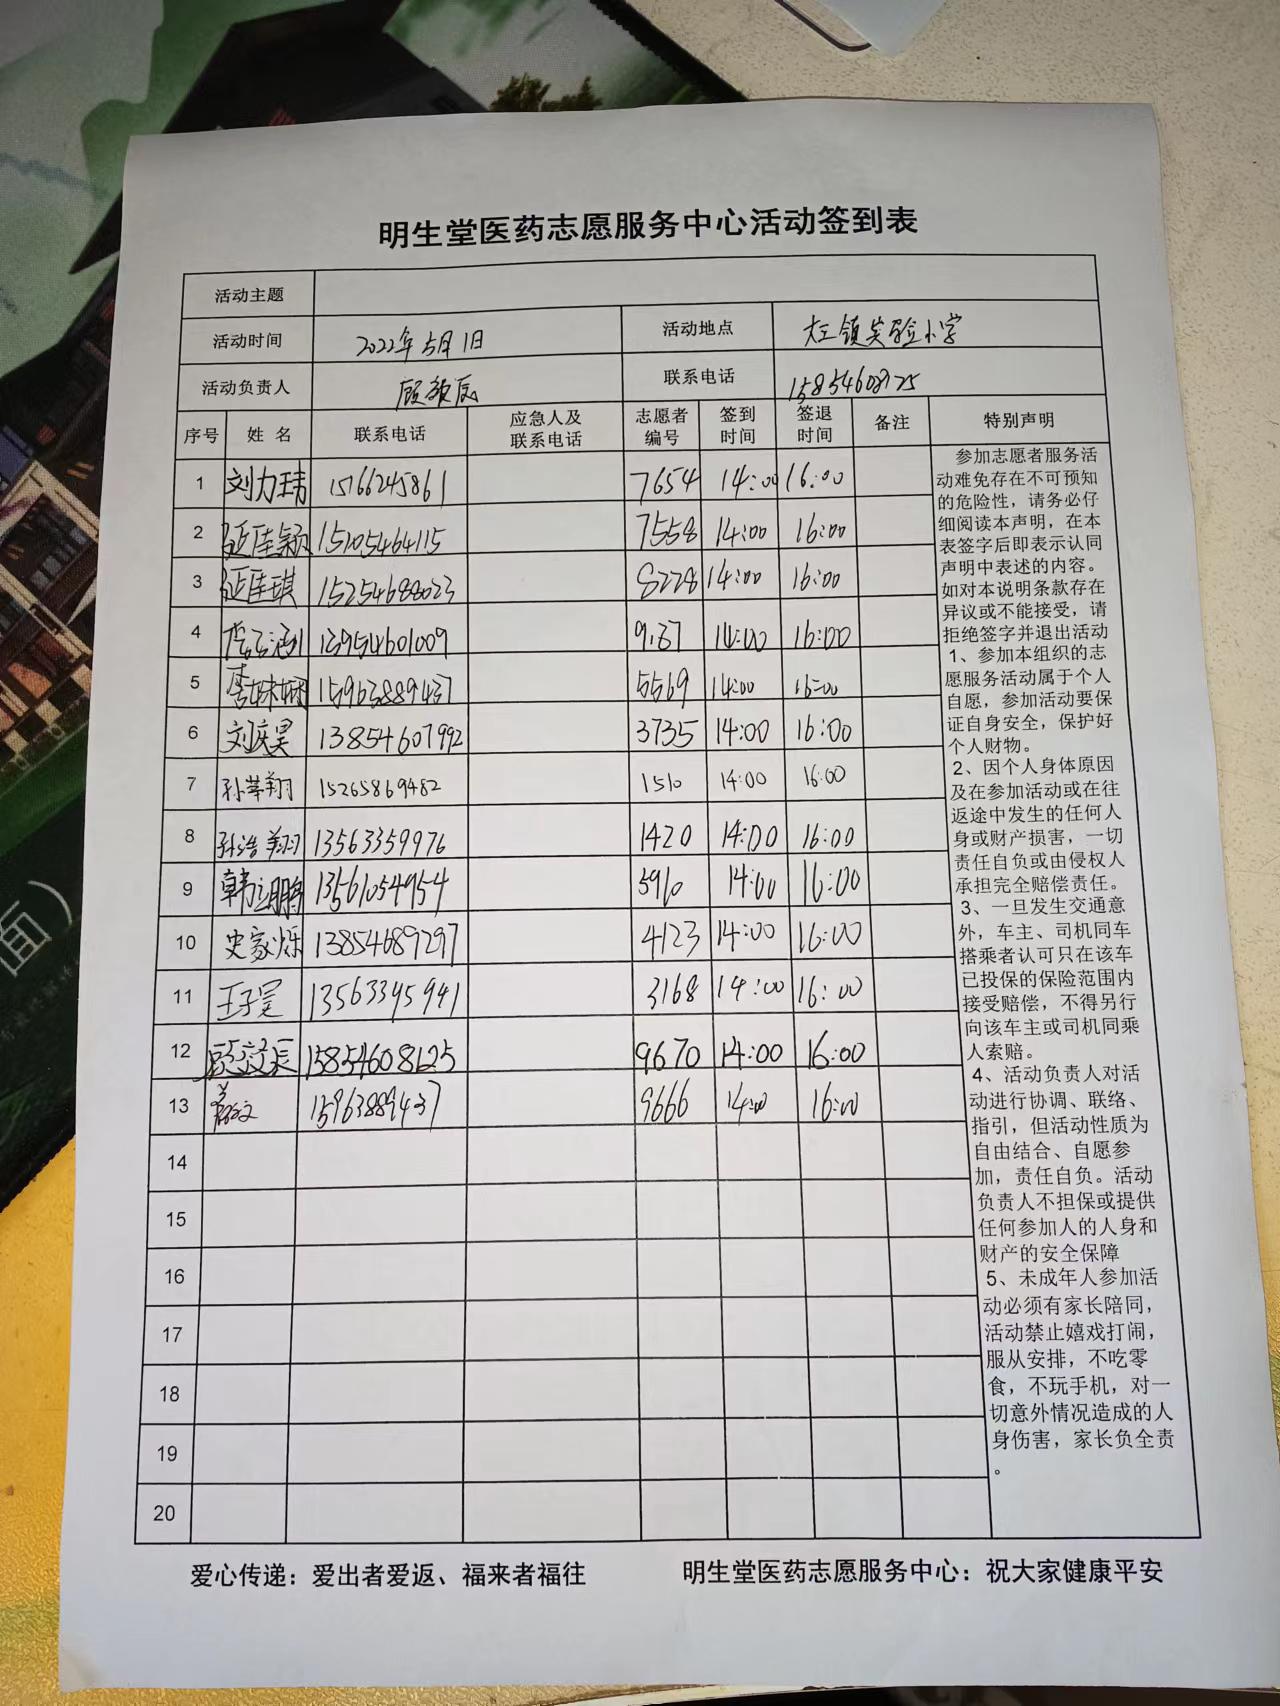 明生堂医药志愿服务中心活动签到表
活动主题
活动时间 2022年5月1日 活动地点 大王镇实验小学
活动负责人 联系电话
序号 姓名 联系电话 应急人及联系电话 志愿者编号 签到时间 签退时间 备注 特别声明
1 刘力玮 15166245861 7654 14:00 16:00
2 15105464115 7558 14:00 16:00
3 15254688023 8228 14:00 16:00
4 13954601009 14:00 16:00
5 15963889437 5569 14:00 16:00
6 刘庆昊 13854607992 3735 14:00 16:00
7 15265869482 1510 14:00 16:00
8 孙浩翔 13563359976 1420 14:00 16:00
9 13561054954 3910 14:00 16:00
10 史家烁 13854689297 4123 14:00 16:00
11 王子昊 13563395941 3168 14:00 16:00
12 15854608125 9670 14:00 16:00
13 15963889437 9666 14:00 16:00
14
15
16
17
18
19
20
参加志愿者服务活
动难免存在不可预知
的危险性，请务必仔
细阅读本声明，在本
表签字后即表示认同
声明中表述的内容。
如对本说明条款存在
异议或不能接受，请
拒绝签字并退出活动
1、参加本组织的志
愿服务活动属于个人
自愿，参加活动要保
证自身安全，保护好
个人财物。
2、因个人身体原因
及在参加活动或在往
返途中发生的任何人
身或财产损害，一切
责任自负或由侵权人
承担完全赔偿责任。
3、一旦发生交通意
外，车主、司机同车
搭乘者认可只在该车
已投保的保险范围内
接受赔偿，不得另行
向该车主或司机同乘
人索赔。
4、活动负责人对活
动进行协调、联络、
指引，但活动性质为
自由结合、自愿参
加，责任自负。活动
负责人不担保或提供
任何参加人的人身和
财产的安全保障
5、未成年人参加活
动必须有家长陪同，
活动禁止嬉戏打闹，
服从安排，不吃零
食，不玩手机，对一
切意外情况造成的人
身伤害，家长负全责
。
爱心传递：爱出者爱返、福来者福往 明生堂医药志愿服务中心：祝大家健康平安
面）